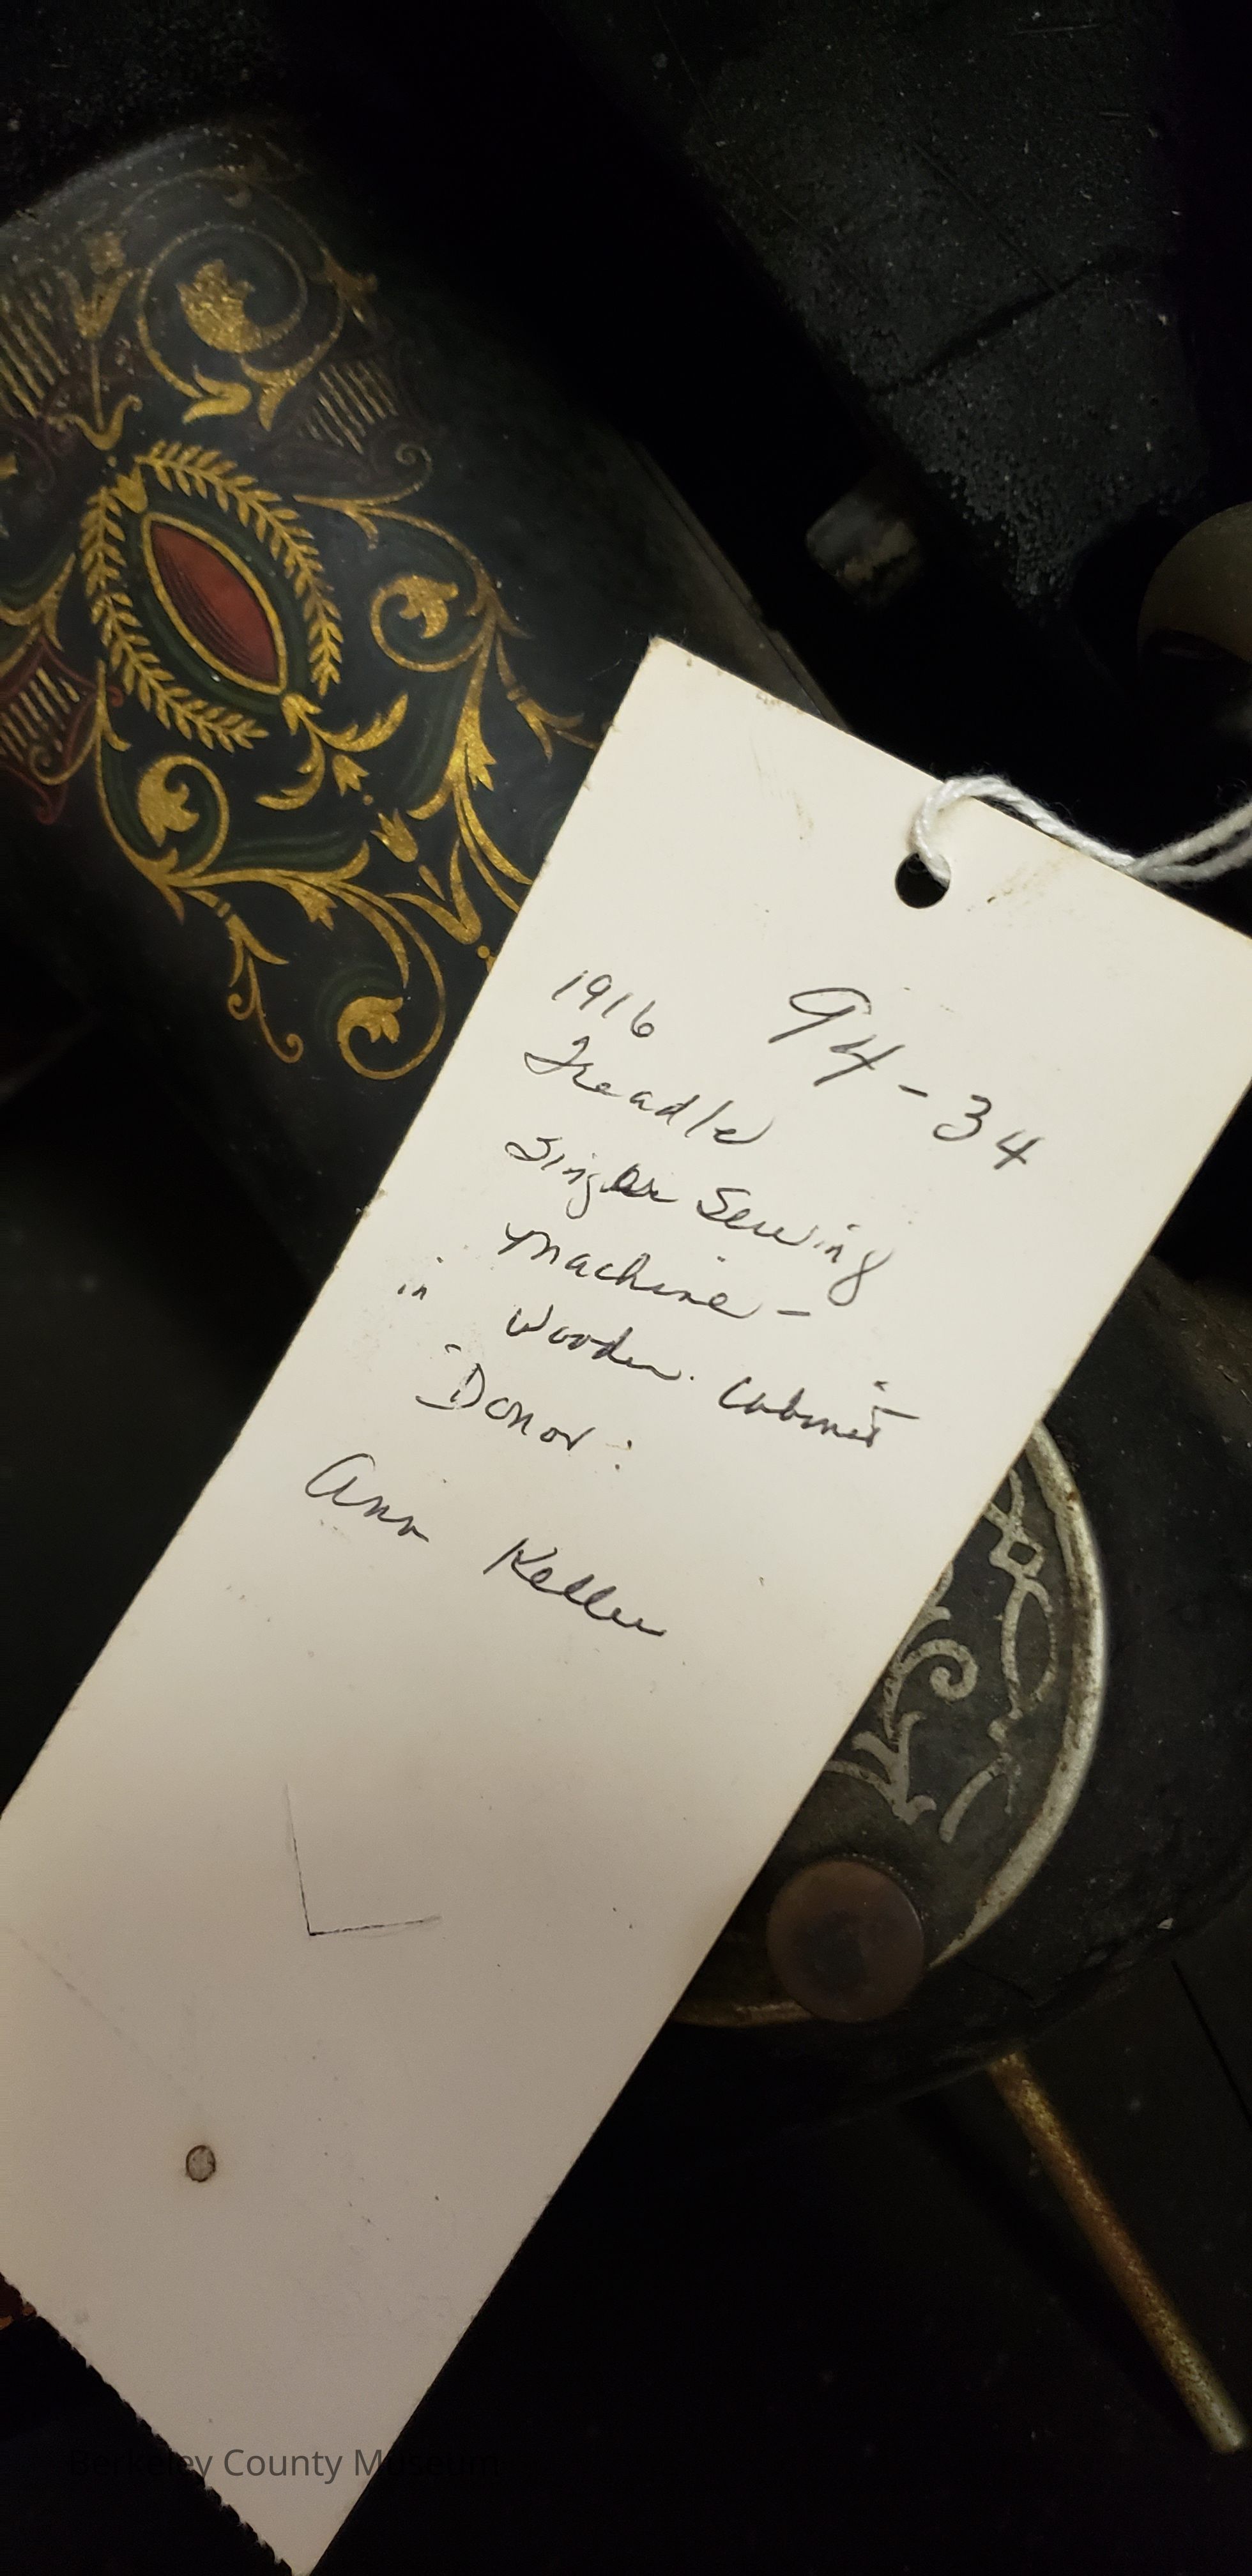 94-34
1916
Treadle
Singer Sewing
Machine -
in Wooden Cabinet
Donor:
Ann Keller
Berkeley County Museum